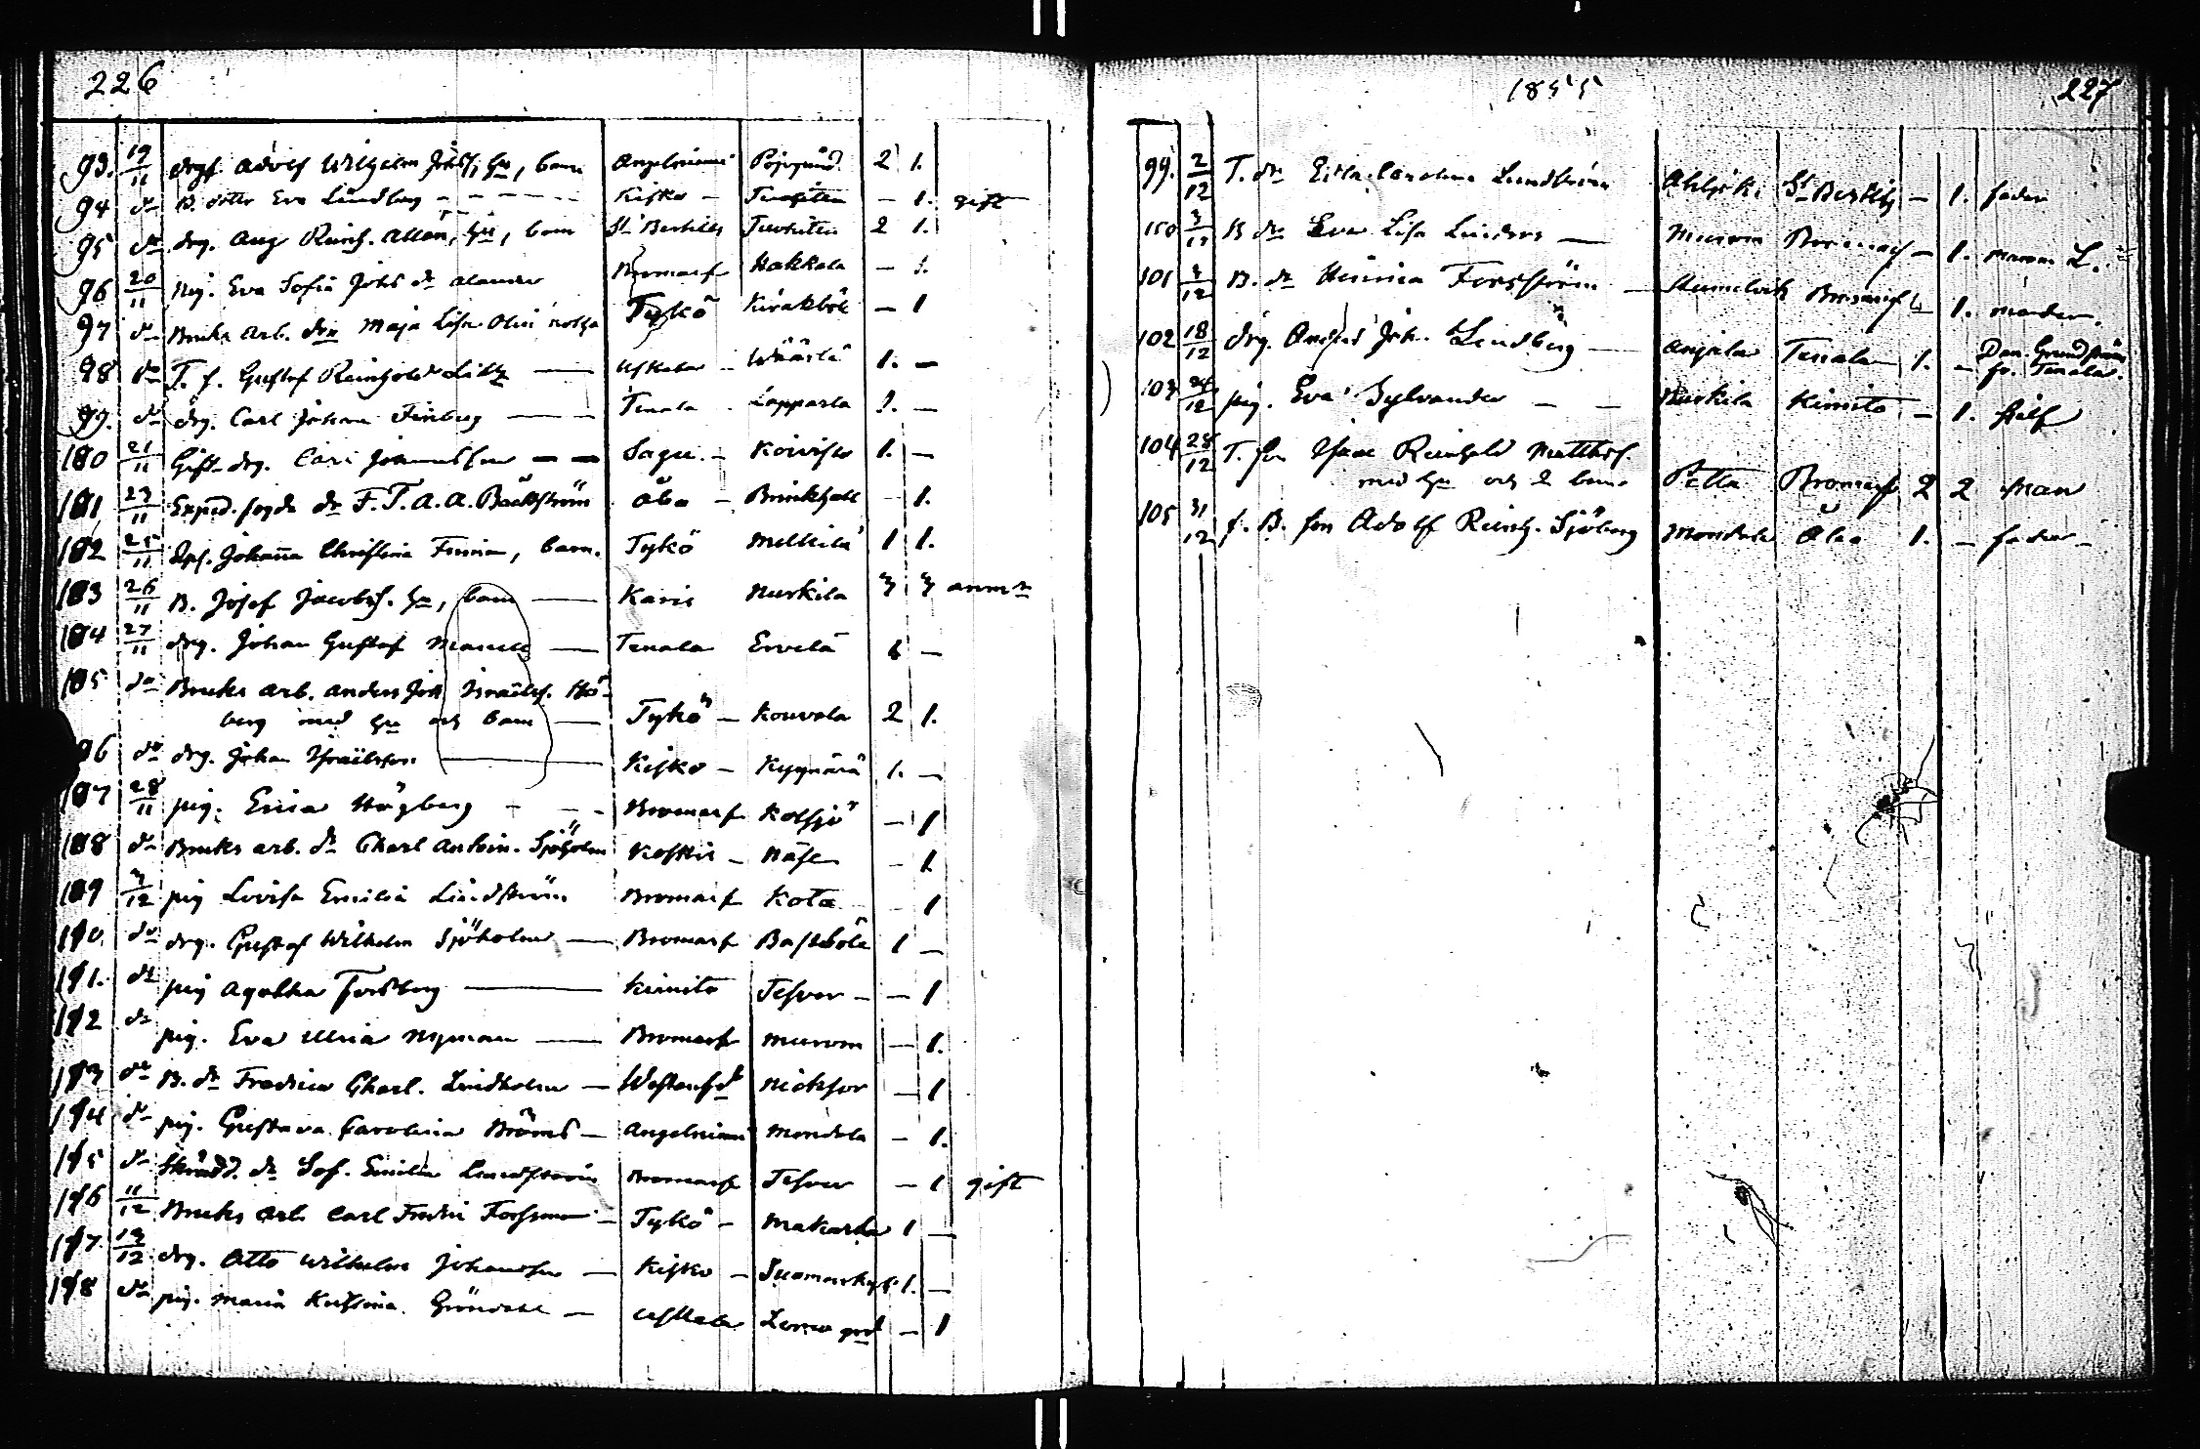 226
93. 19/11 drgf. Adolf Wilhelm Johsf, hu, barn Angelniemi Pojogund 2 1.
94 do B. dottr Eva Lindberg - - - - Kisko - - 1. gift
95 do drg. Aug Reinh. Allen, hu, barn St Bertils 2 1.
96 20/11 pig. Eva Sofia Johs dr Alander Bromarf Hakkala - 1.
97 do Bruks arb. dr Maja Lisa Tykö Kirakböle - 1
98 do T. f. Gustaf Reinhold — Uskela - Wäärlä 1. -
99. do drg. Carl Johan Finberg — Tenala - Lapparla 1. -
100 21/11 Gift drg. Carl Johansson — — Sagu - Koivisto 1. -
101 23/11 Exped. fogde dr F. T. A. A. Backström Åbo - Brinkhall - 1.
102 25/11 Johanna Christina, barn. Tykö Melkilä 1 1.
103 26/11 B. Josef Jacobsf. hu, barn — Karis Kurkila 3 3 anm
104 27/11 drg. Johan Gustaf — Tenala Ervelä 1 -
105 do Bruks arb. Anders Joh Israelsf. Hö-
berg med hu och barn — Tykö - Kouvola 2 1.
96 do drg. Johan Israelsson — Kisko - Kyynärä 1. -
107 28/11 pig. Erica Högberg - - - Bromarf Kolsjö - 1
108 do Bruks arb. dr Charl Antoin. Sjöholm Koskis - Näse - 1
109 3/12 pig Lovisa Emilia Lindström Bromarf Kota - 1
110 do drg. Gustaf Wilhelm Sjöholm — Bromarf Bastböle 1 -
111. do pig Agatha Forsberg — Kimito Tesvor - - 1
112 do pig. Eva Ulrica Nyman — Bromarf Murom - 1.
113 do B. dr Fredrica Charl. Lindholm - Westanfd Nicksor - 1
114 do pig. Gustava Carolina Bröms - Angelniemi Mondola - 1.
115 do Skrädd. dr Sof. Emilia Lindström Bromarf Tesvor - 1 gift
116 11/12 Bruks arb Carl Fredric Forsman - Tykö - Makarla 1 -
117. 12/12 drg. Otto Wilhelm Johansson - Kisko - Suomenkyl. 1. -
118 do pig. Maria Kristina Gröndahl - Uskela - 1
1855 227
99. 2/12 T. dr Carolina Lundström St Bertils - 1. fader
100 3/12 B dr Eva Lisa Linders — Murom Bromarf - 1. L.
101 4/12 B. dr Henrica Forsström — Bromarf 1. moder.
102 18/12 drg. Anders Joh. Lindberg — Angela Tenala 1. - Dan. Grundström
fr. Tenala.
103 /12 pig. Eva Sylvander - - Kurkila Kimito - 1. Sjelf
104 28/12 T. son Isaac Reinhold Matthsf.
med hu och 2 barn Petta Bromarf 2 2 Man
105 31/12 f. B. son Adolf Reinh. Sjöberg Mondola Åbo 1. - fader -